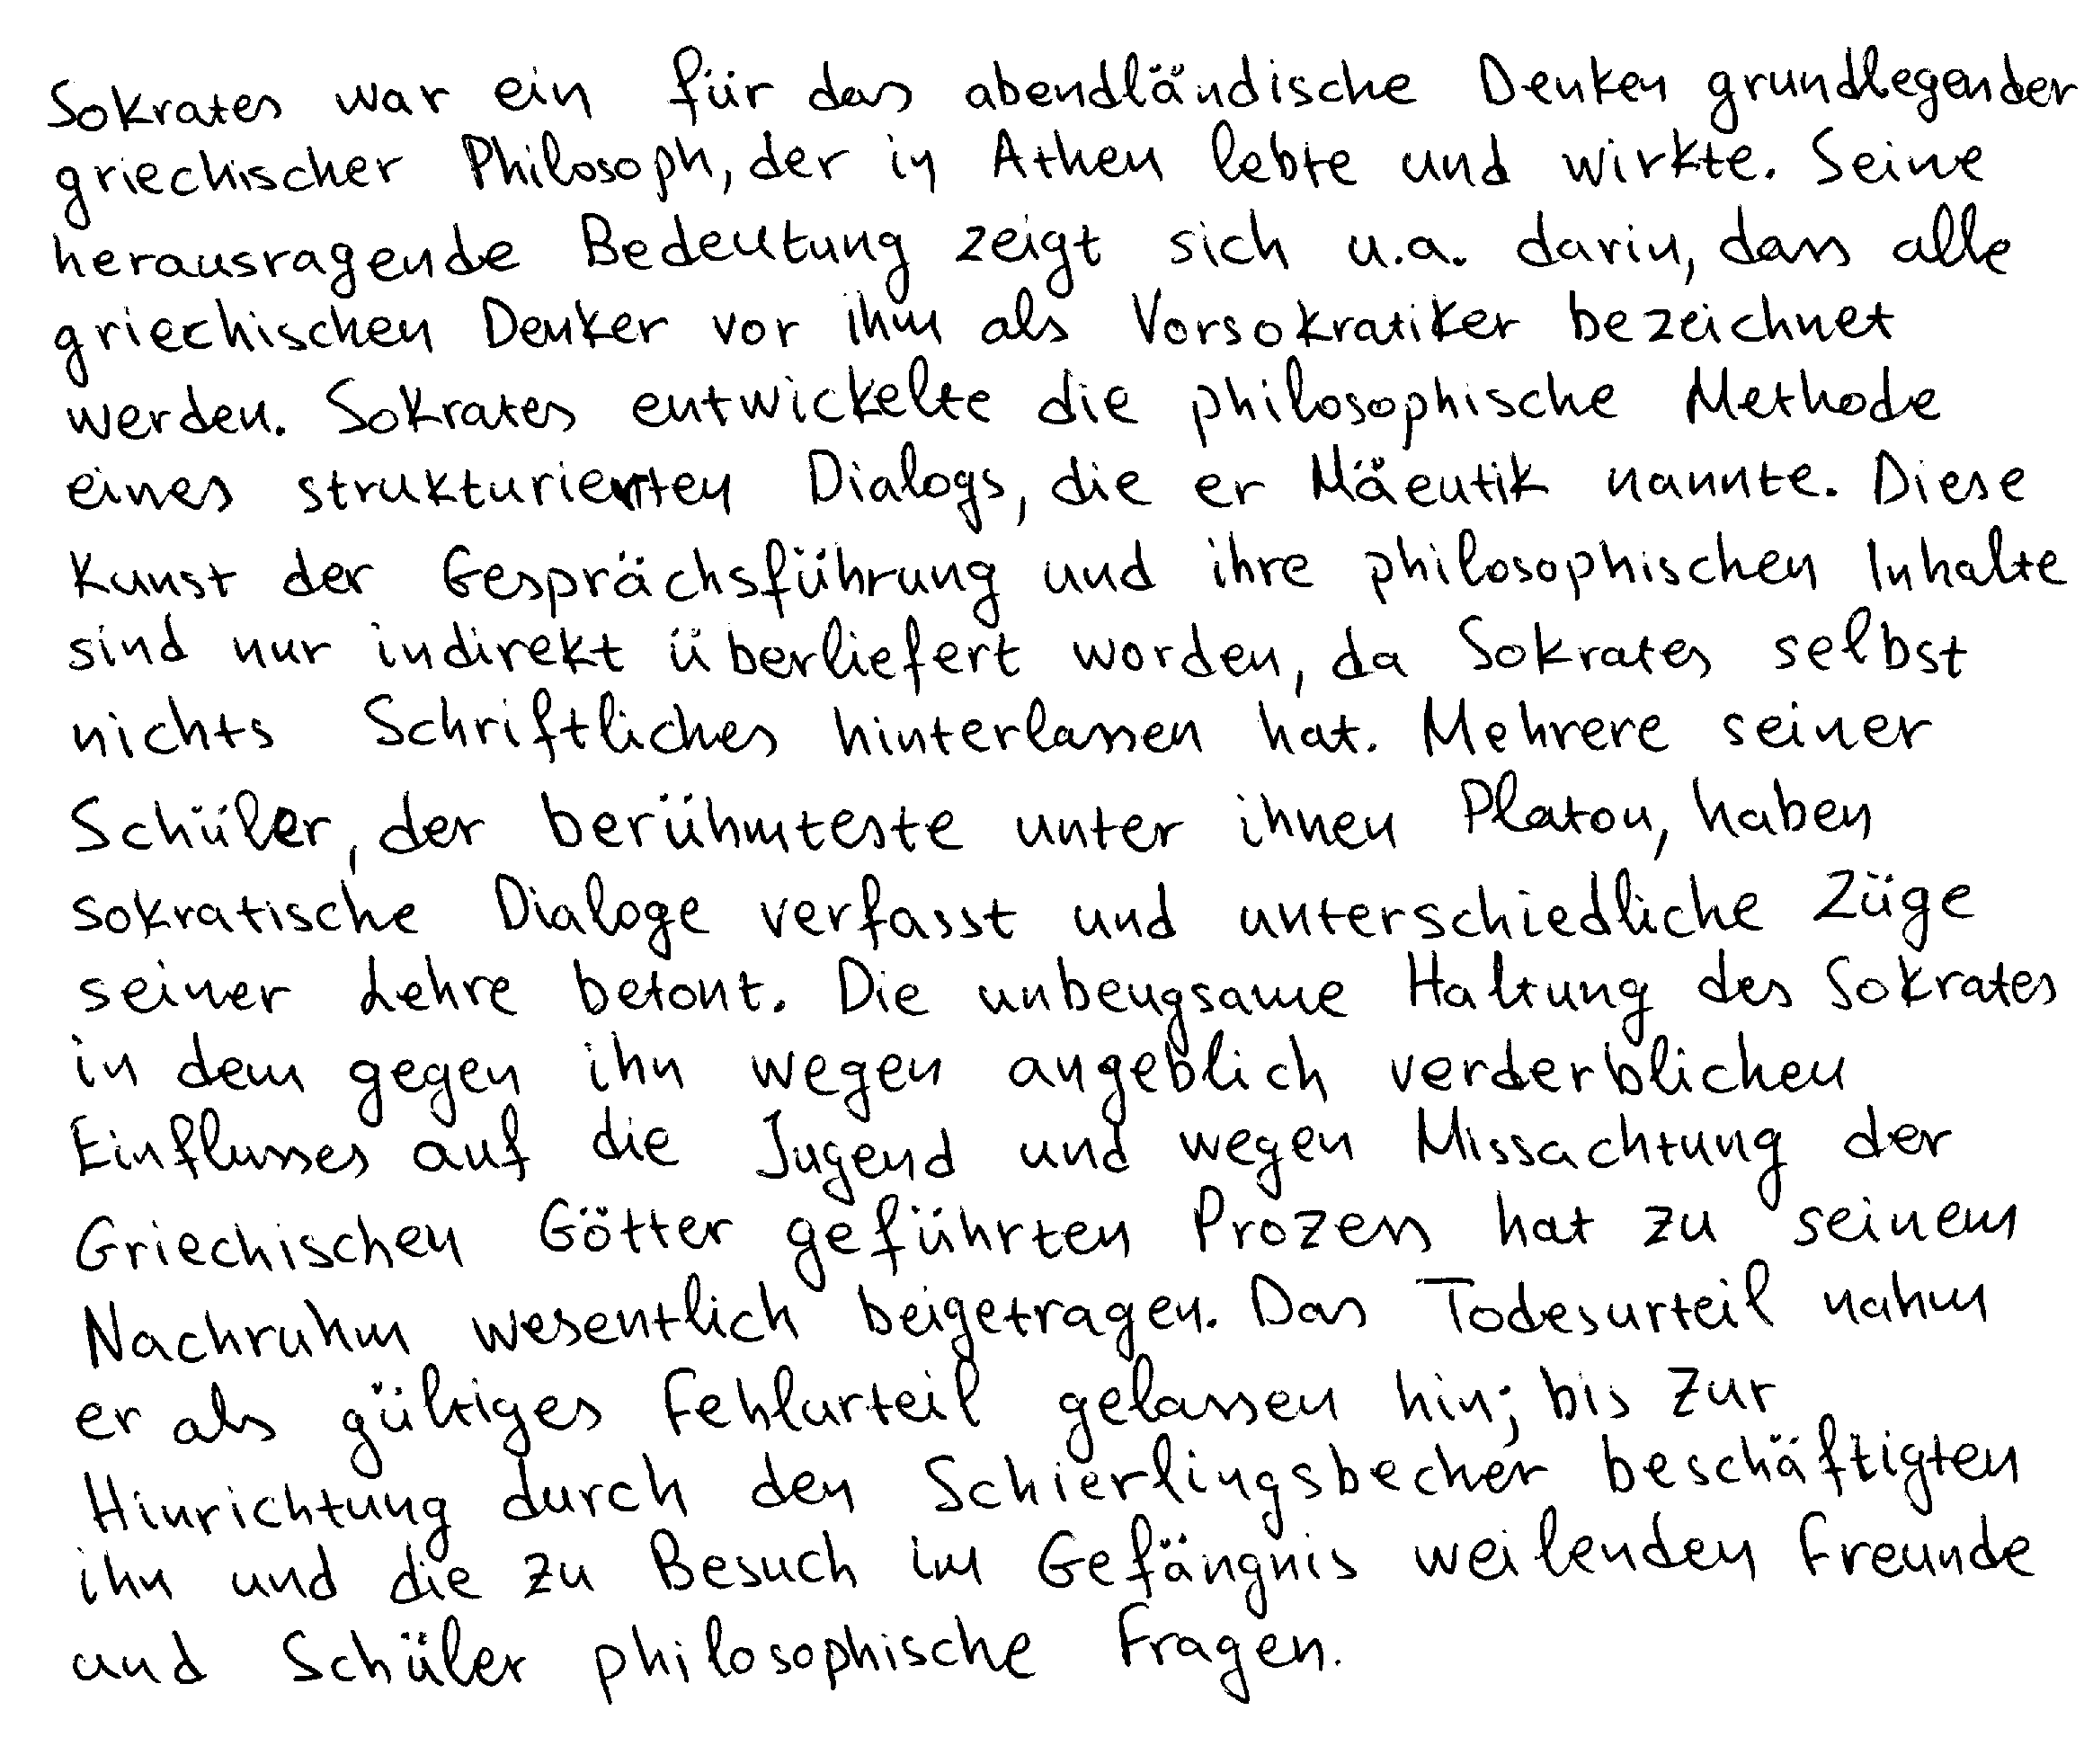 Sokrates war ein für das abendländische Denken grundlegender
griechischer Philosoph, der in Athen lebte und wirkte. Seine
herausragende Bedeutung zeigt sich u.a. darin, dass alle
griechischen Denker vor ihm als Vorsokratiker bezeichnet
werden. Sokrates entwickelte die philosophische Methode
eines strukturierten Dialogs, die er Mäeutik nannte. Diese
Kunst der Gesprächsführung und ihre philosophischen Inhalte
sind nur indirekt überliefert worden, da Sokrates selbst
nichts Schriftliches hinterlassen hat. Mehrere seiner
Schüler, der berühmteste unter ihnen Platon, haben
sokratische Dialoge verfasst und unterschiedliche Züge
seiner Lehre betont. Die unbeugsame Haltung des Sokrates
in dem gegen ihn wegen angeblich verderblichen
Einflusses auf die Jugend und wegen Missachtung der
Griechischen Götter geführten Prozess hat zu seinem
Nachruhm wesentlich beigetragen. Das Todesurteil nahm
er als gültiges Fehlurteil gelassen hin; bis zur
Hinrichtung durch den Schierlingsbecher beschäftigten
ihn und die zu Besuch im Gefängnis weilenden Freunde
und Schüler philosophische Fragen.